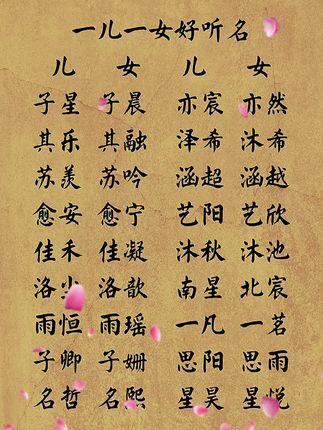 一儿一女好听名
儿 女 儿 女
子星 子晨 亦宸 亦然
其乐 其融 泽希 沐希
苏羡 苏吟 涵超 涵越
愈安 愈宁 艺阳 艺欣
佳禾 佳凝 沐秋 沐池
洛尘 洛歆 南星 北宸
雨恒 雨瑶 一凡 一茗
子卿 子姗 思阳 思雨
名哲 名熙 星昊 星悦